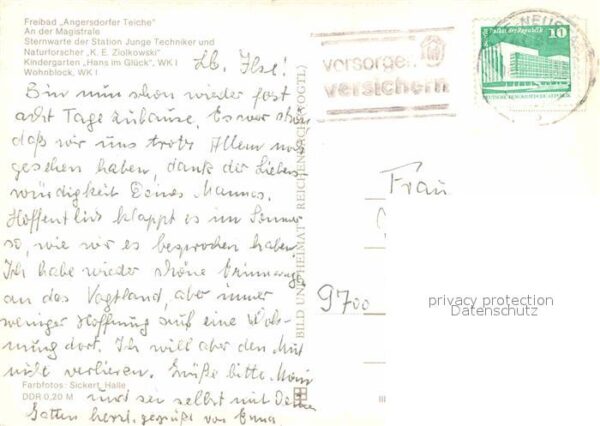 Freibad „Angersdorfer Teiche"
An der Magistrale
Sternwarte der Station Junge Techniker und
Naturforscher „K. E. Ziolkowski"
Kindergarten „Hans im Glück", WK I
Wohnblock, WK I
Lb. Ilse!
Bin nun schon wieder fast
acht Tage zuhause. Es war schön
daß wir uns trotz Allem noch
gesehen haben, dank der Liebens
würdigkeit Deines Mannes.
Hoffentlich klappt es im Sommer
so, wie wir es besprochen haben.
Ich habe wieder schöne Erinnerunge
an das Vogtland, aber immer
weniger Hoffnung auf eine Woh-
nung dort. Ich will aber den Mut
nicht verlieren. Grüße bitte
und sei selbst mit Deinem
Gatten herzl. gegrüßt von
Farbfotos: Sickert, Halle
DDR 0,20 M
BILD UND HEIMAT REICHENBACH (VOGTL)
vorsorgen
versichern
Palast der Republik
10
DEUTSCHE DEMOKRATISCHE REPUBLIK
Frau
9700
privacy protection
Datenschutz